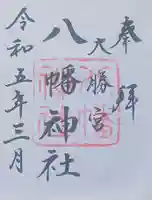 奉拝
大勝宮
八幡神社
令和五年三月